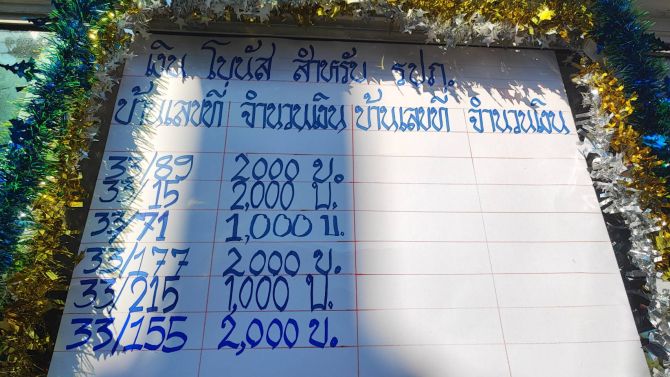 เงิน โบนัส สำหรับ รปภ.
บ้านเลขที่ จำนวนเงิน บ้านเลขที่ จำนวนเงิน
33/89 2000 บ.
33/15 2,000 บ.
33/71 1,000 บ.
33/177 2000 บ.
33/215 1,000 บ.
33/155 2,000 บ.